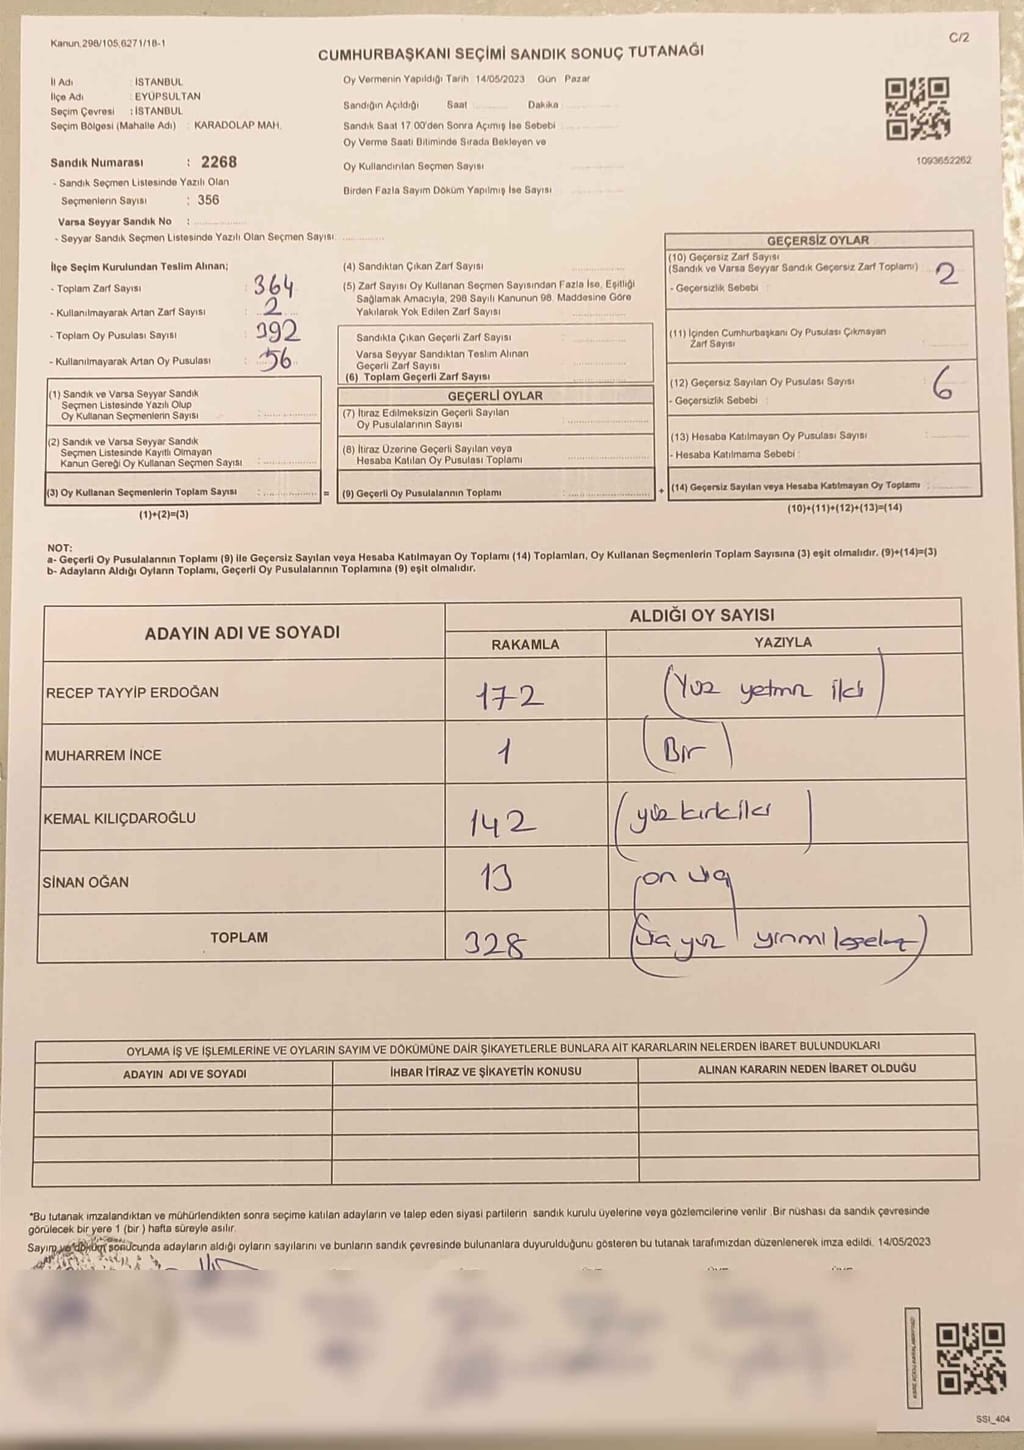 Kanun.298/105,6271/18-1
C/2
CUMHURBAŞKANI SEÇİMİ SANDIK SONUÇ TUTANAĞI
İl Adı : İSTANBUL
İlçe Adı : EYÜPSULTAN
Seçim Çevresi : İSTANBUL
Seçim Bölgesi (Mahalle Adı) : KARADOLAP MAH.
Oy Vermenin Yapıldığı Tarih 14/05/2023 Gün Pazar
Sandığın Açıldığı Saat Dakika
Sandık Saat 17.00'den Sonra Açımış İse Sebebi
Oy Verme Saati Bitiminde Sırada Bekleyen ve
Oy Kullandırılan Seçmen Sayısı
Birden Fazla Sayım Döküm Yapılmış İse Sayısı
1093652262
Sandık Numarası : 2268
- Sandık Seçmen Listesinde Yazılı Olan
Seçmenlerin Sayısı : 356
Varsa Seyyar Sandık No :
- Seyyar Sandık Seçmen Listesinde Yazılı Olan Seçmen Sayısı:
İlçe Seçim Kurulundan Teslim Alınan;
- Toplam Zarf Sayısı : 364
- Kullanılmayarak Artan Zarf Sayısı : 2
- Toplam Oy Pusulası Sayısı : 392
- Kullanılmayarak Artan Oy Pusulası : 56
(1) Sandık ve Varsa Seyyar Sandık
Seçmen Listesinde Yazılı Olup
Oy Kullanan Seçmenlerin Sayısı :
(2) Sandık ve Varsa Seyyar Sandık
Seçmen Listesinde Kayıtlı Olmayan
Kanun Gereği Oy Kullanan Seçmen Sayısı :
(3) Oy Kullanan Seçmenlerin Toplam Sayısı : =
(1)+(2)=(3)
(4) Sandıktan Çıkan Zarf Sayısı
(5) Zarf Sayısı Oy Kullanan Seçmen Sayısından Fazla İse, Eşitliği
Sağlamak Amacıyla, 298 Sayılı Kanunun 98. Maddesine Göre
Yakılarak Yok Edilen Zarf Sayısı
Sandıkta Çıkan Geçerli Zarf Sayısı
Varsa Seyyar Sandıktan Teslim Alınan
Geçerli Zarf Sayısı
(6) Toplam Geçerli Zarf Sayısı
GEÇERLİ OYLAR
(7) İtiraz Edilmeksizin Geçerli Sayılan
Oy Pusulalarının Sayısı
(8) İtiraz Üzerine Geçerli Sayılan veya
Hesaba Katılan Oy Pusulası Toplamı
(9) Geçerli Oy Pusulalarının Toplamı +
GEÇERSİZ OYLAR
(10) Geçersiz Zarf Sayısı
(Sandık ve Varsa Seyyar Sandık Geçersiz Zarf Toplamı) 2
- Geçersizlik Sebebi :
(11) İçinden Cumhurbaşkanı Oy Pusulası Çıkmayan
Zarf Sayısı
(12) Geçersiz Sayılan Oy Pusulası Sayısı 6
- Geçersizlik Sebebi :
(13) Hesaba Katılmayan Oy Pusulası Sayısı
- Hesaba Katılmama Sebebi :
(14) Geçersiz Sayılan veya Hesaba Katılmayan Oy Toplamı :
(10)+(11)+(12)+(13)=(14)
NOT:
a- Geçerli Oy Pusulalarının Toplamı (9) ile Geçersiz Sayılan veya Hesaba Katılmayan Oy Toplamı (14) Toplamları, Oy Kullanan Seçmenlerin Toplam Sayısına (3) eşit olmalıdır. (9)+(14)=(3)
b- Adayların Aldığı Oyların Toplamı, Geçerli Oy Pusulalarının Toplamına (9) eşit olmalıdır.
ADAYIN ADI VE SOYADI
ALDIĞI OY SAYISI
RAKAMLA YAZIYLA
RECEP TAYYİP ERDOĞAN 172 (Yüz yetmiş iki)
MUHARREM İNCE 1 (Bir)
KEMAL KILIÇDAROĞLU 142 (yüz kırk iki)
SİNAN OĞAN 13 (on üç)
TOPLAM 328 (Üç yüz yirmi sekiz)
OYLAMA İŞ VE İŞLEMLERİNE VE OYLARIN SAYIM VE DÖKÜMÜNE DAİR ŞİKAYETLERLE BUNLARA AİT KARARLARIN NELERDEN İBARET BULUNDUKLARI
ADAYIN ADI VE SOYADI İHBAR İTİRAZ VE ŞİKAYETİN KONUSU ALINAN KARARIN NEDEN İBARET OLDUĞU
*Bu tutanak imzalandıktan ve mühürlendikten sonra seçime katılan adayların ve talep eden siyasi partilerin sandık kurulu üyelerine veya gözlemcilerine verilir. Bir nüshası da sandık çevresinde
görülecek bir yere 1 (bir) hafta süreyle asılır.
Sayım ve döküm sonucunda adayların aldığı oyların sayılarını ve bunların sandık çevresinde bulunanlara duyurulduğunu gösteren bu tutanak tarafımızdan düzenlenerek imza edildi. 14/05/2023
SSI_404